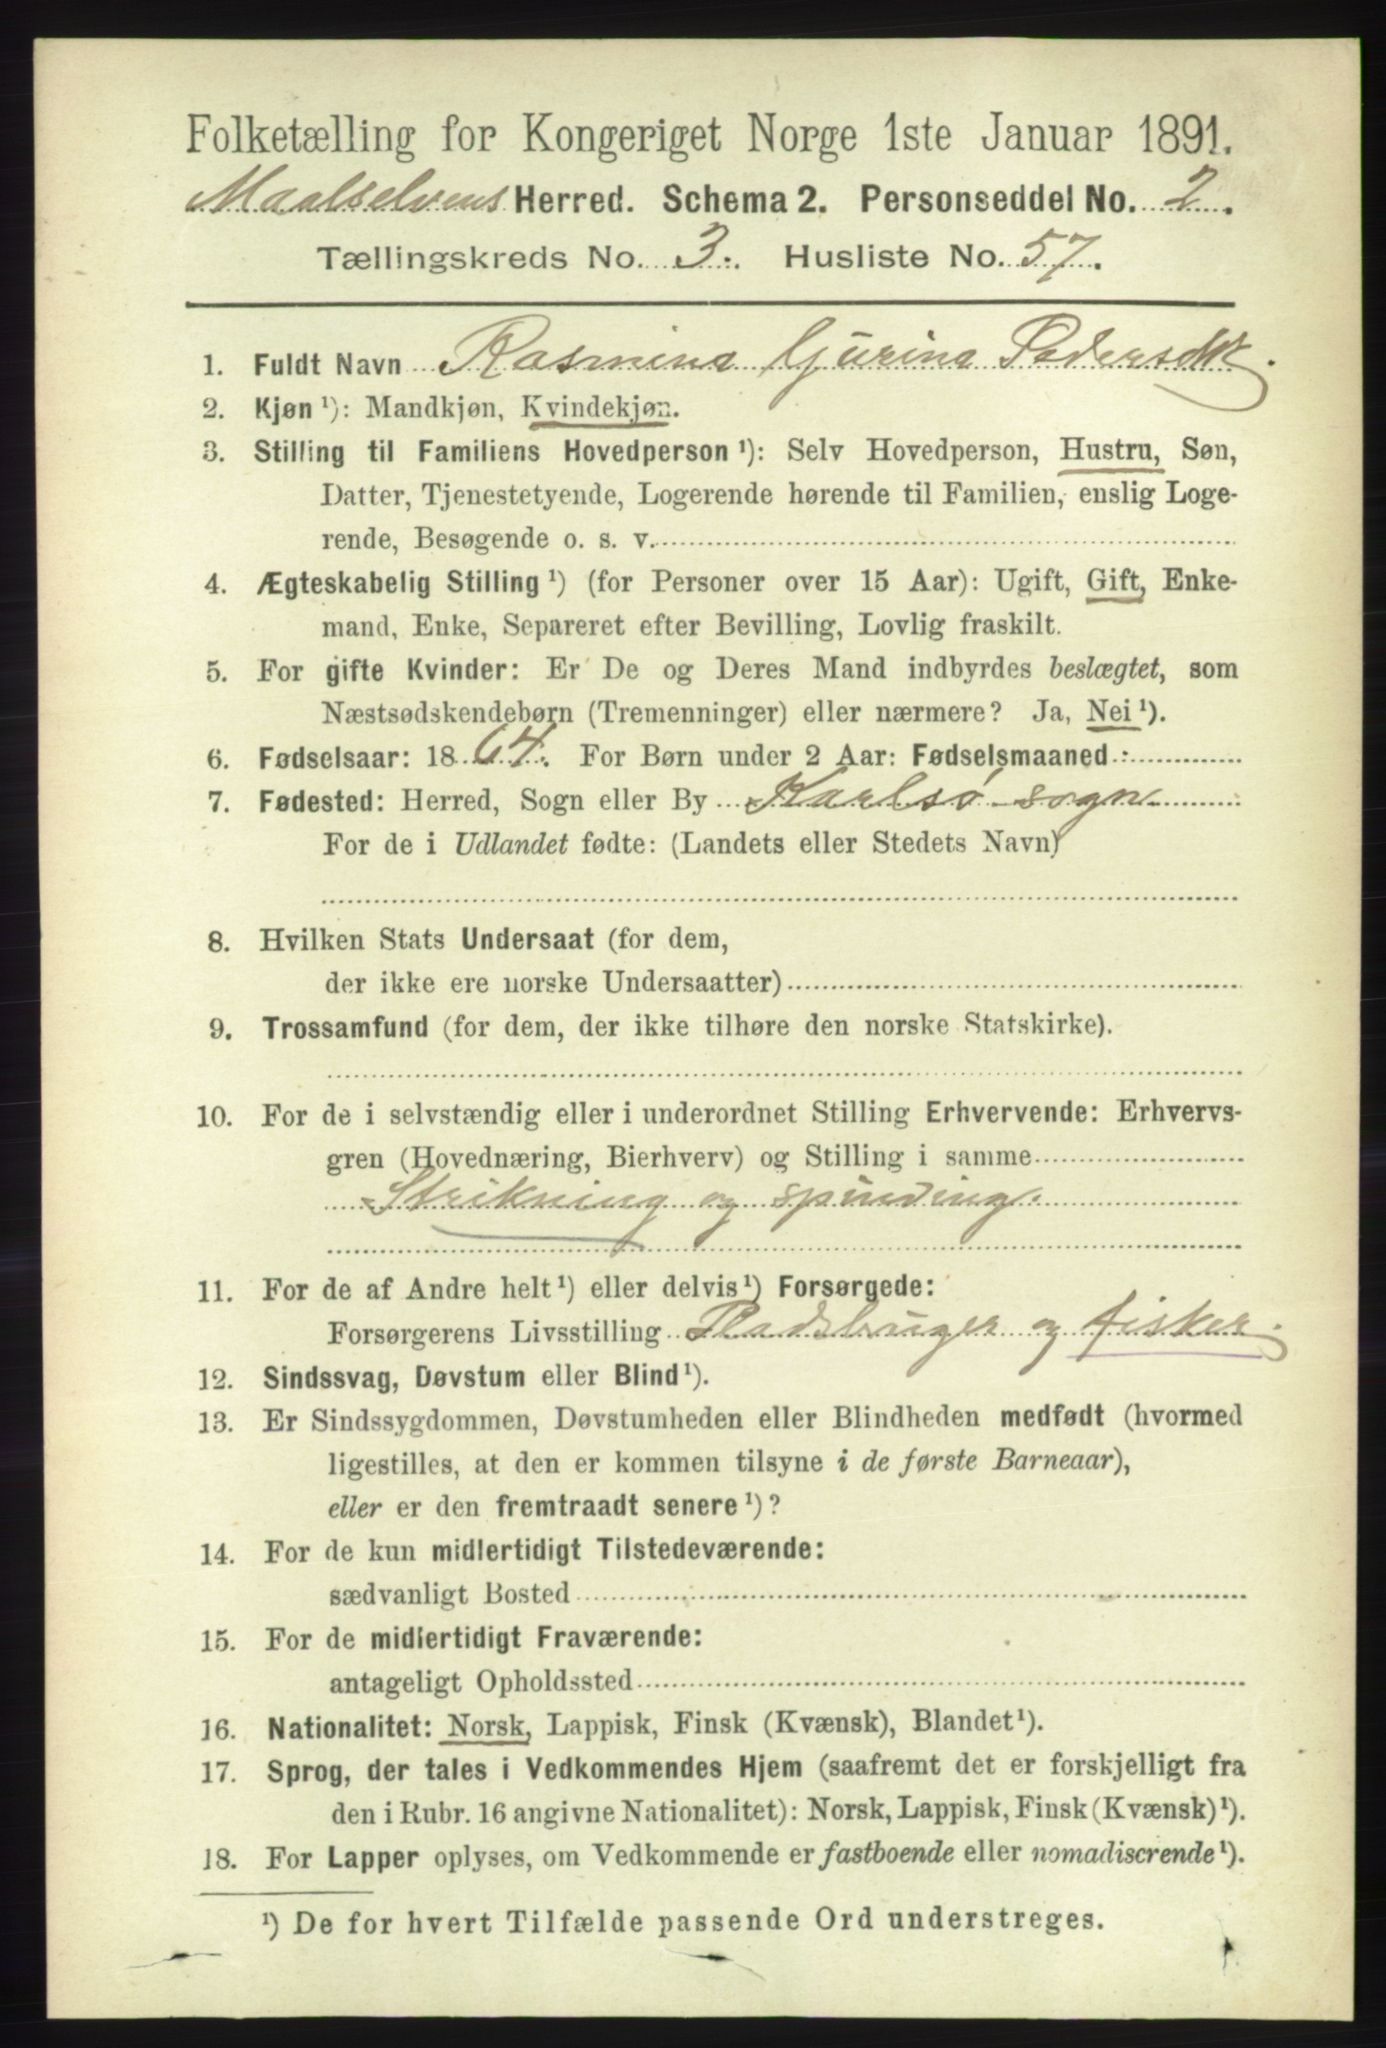 Folketælling for Kongeriget Norge 1ste Januar 1891.
Maalselvens Herred. Schema 2. Personseddel No. 2.
Tællingskreds No. 3. Husliste No. 57.
1. Fuldt Navn Rasmina Gjurina Pedersdtr.
2. Kjøn ¹): Mandkjøn, Kvindekjøn.
3. Stilling til Familiens Hovedperson ¹): Selv Hovedperson, Hustru, Søn,
Datter, Tjenestetyende, Logerende hørende til Familien, enslig Loge-
rende, Besøgende o. s. v.
4. Ægteskabelig Stilling ¹) (for Personer over 15 Aar): Ugift, Gift, Enke-
mand, Enke, Separeret efter Bevilling, Lovlig fraskilt.
5. For gifte Kvinder: Er De og Deres Mand indbyrdes beslægtet, som
Næstsødskendebørn (Tremenninger) eller nærmere? Ja, Nei ¹).
6. Fødselsaar: 1864. For Børn under 2 Aar: Fødselsmaaned:
7. Fødested: Herred, Sogn eller By Karlsø sogn
For de i Udlandet fødte: (Landets eller Stedets Navn)
8. Hvilken Stats Undersaat (for dem,
der ikke ere norske Undersaatter)
9. Trossamfund (for dem, der ikke tilhøre den norske Statskirke).
10. For de i selvstændig eller i underordnet Stilling Erhvervende: Erhvervs-
gren (Hovednæring, Bierhverv) og Stilling i samme
Strikning og spinding.
11. For de af Andre helt ¹) eller delvis ¹) Forsørgede:
Forsørgerens Livsstilling Pladsbruger og fisker.
12. Sindssvag, Døvstum eller Blind ¹).
13. Er Sindssygdommen, Døvstumheden eller Blindheden medfødt (hvormed
ligestilles, at den er kommen tilsyne i de første Barneaar),
eller er den fremtraadt senere ¹)?
14. For de kun midlertidigt Tilstedeværende:
sædvanligt Bosted
15. For de midlertidigt Fraværende:
antageligt Opholdssted
16. Nationalitet: Norsk, Lappisk, Finsk (Kvænsk), Blandet ¹).
17. Sprog, der tales i Vedkommendes Hjem (saafremt det er forskjelligt fra
den i Rubr. 16 angivne Nationalitet): Norsk, Lappisk, Finsk (Kvænsk) ¹).
18. For Lapper oplyses, om Vedkommende er fastboende eller nomadiscrende ¹).
¹) De for hvert Tilfælde passende Ord understreges.